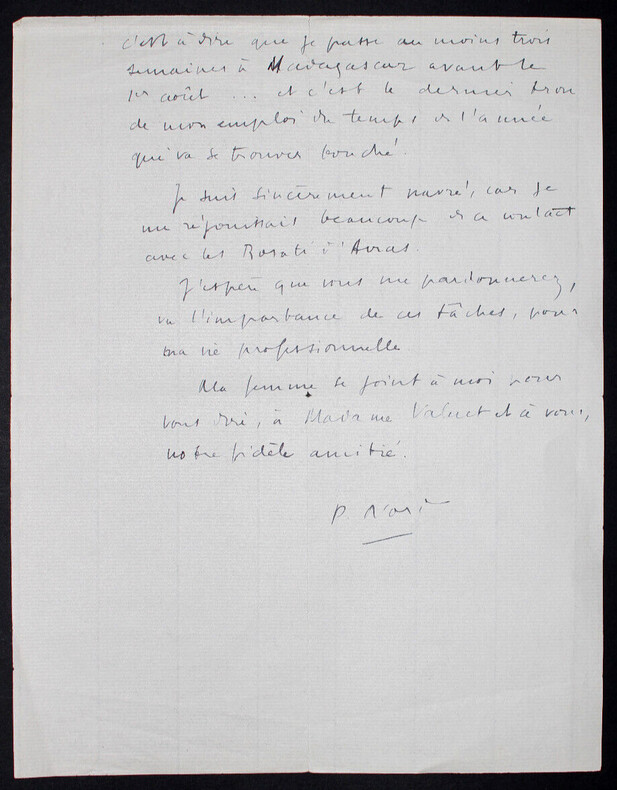 c'est à dire que je passe au moins trois
semaines à Madagascar avant le
1er août ... et c'est le dernier trou
de mon emploi du temps de l'année
qui va se trouver bouché.
Je suis sincèrement navré, car je
me réjouissais beaucoup de ce contact
avec les Rosati à Arras.
J'espère que vous me pardonnerez,
vu l'importance de ces tâches, pour
ma vie professionnelle
Ma femme se joint à moi pour
vous dire, à Madame et à vous,
notre fidèle amitié.
P.